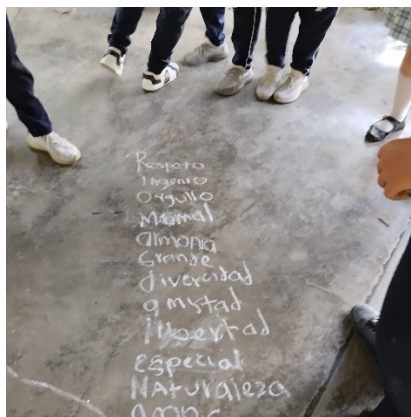 Respeto
Ingenio
Orgullo
Manual
almona
Grande
diversidad
amystad
libertad
especial
Naturaleza
amor